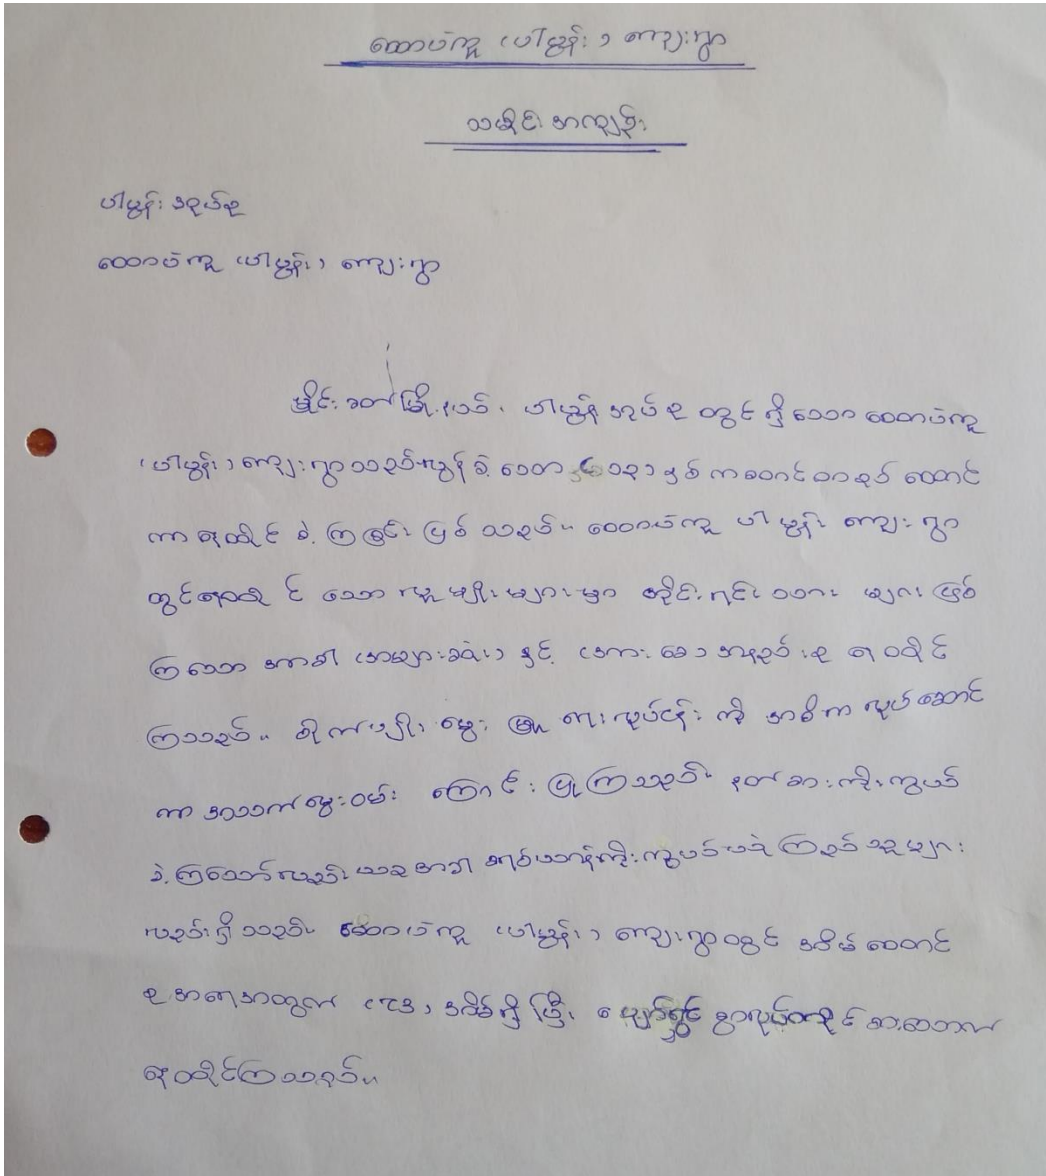 ထောပဲကူ (ပါမွန်း) ကျေးရွာ
သမိုင်း အကျဉ်း
ပါမွန်း အုပ်စု
ထောပဲကူ (ပါမွန်း) ကျေးရွာ
မိုင်းခတ်မြို့နယ်၊ ပါမွန်းအုပ်စု တွင် ရှိသော ထောပဲကူ
(ပါမွန်း) ကျေးရွာသည် လွန်ခဲ့သော နှစ်က စတင်တည်ထောင်
ကာ နေထိုင် ခဲ့ကြခြင်း ဖြစ်သည်။ ထောပဲကူ ပါမွန်း ကျေးရွာ
တွင်နေထိုင်သော လူမျိုးများမှာ တိုင်းရင်းသား များ ဖြစ်
ကြသော အာခါ (အများစု) နှင့် နေထိုင်
ကြသည်။ စိုက်ပျိုး မွေးမြူရေး လုပ်ငန်း ကို အဓိက လုပ်ဆောင်
ကာ အသက်မွေးဝမ်း ကြောင်း ပြုကြသည်။ နတ်စားကိုးကွယ်
ခဲ့ကြသော်လည်း ယခုအခါ ခရစ်ယာန်ကိုးကွယ် သူများ
လည်းရှိသည်။ ထောပဲကူ (ပါမွန်း) ကျေးရွာတွင် အိမ်ထောင်
စု အရေအတွက် (၇၃) အိမ်ရှိပြီး ပျော်ရွှင်စွာလုပ်ကိုင်စားသောက်
နေထိုင်ကြသည်။